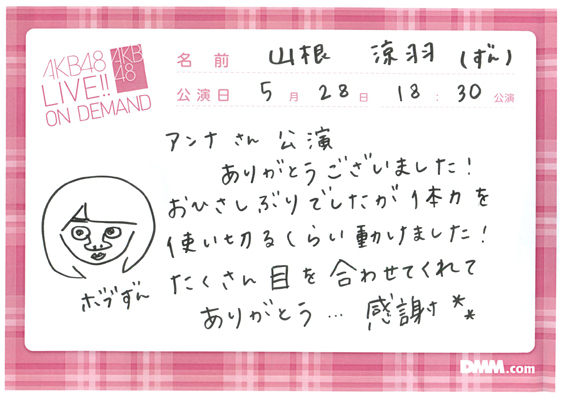 AKB48
LIVE!!
ON DEMAND
AKB
48
名前 山根 涼羽 (ずん)
公演日 5月28日 18:30公演
アンナさん 公演
ありがとうございました!
おひさしぶりでしたが体力を
使い切るくらい動けました!
たくさん目を合わせてくれて
ありがとう… 感謝**
ボブずん
DMM.com